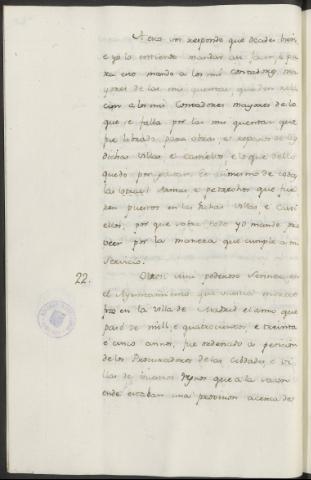 A esto vos respondo que decides bien,
e yo lo entiendo mandar asi facer, e pa
ra esto mando a los mis Contadores ma
yores de las mis quentas que den rela
cion a los mis Contadores mayores de lo
que se falla por las mis quentas que
fue librado para obras, e reparos de las
dichas Villas e castillos, e lo que dello
quedó por
las armas e petrechos que fue
ron puestos en las dichas Villas, e Casti
llos, por que sobre todo yo mande pro
veer por la manera que cumple a mi
servicio.
22. Otrosi mui poderoso Señor, en
el Ayuntamiento que vuestra merced
fizo en la Villa de Madrid el año que
pasó de mill, e quatrocientos, e treinta
e cinco annos, fue ordenado a peticion
de los Procuradores de las Cibdades, e Vi
llas de vuestros Regnos que a la sazon
ende estaban una provision acerca de